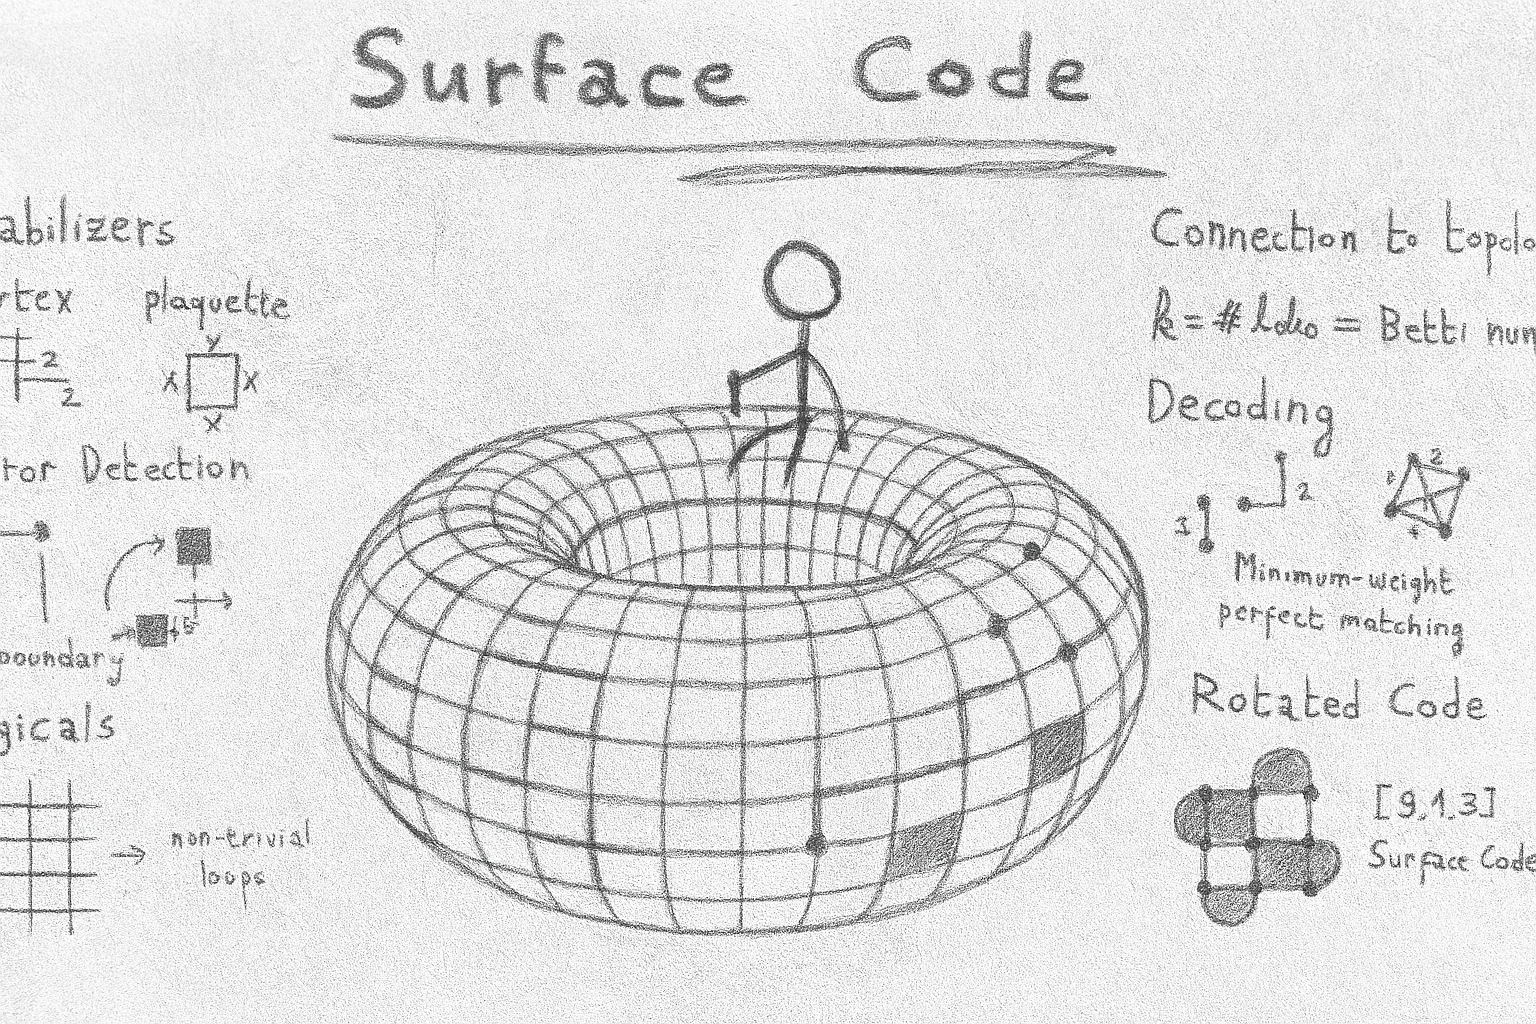 Surface Code
abilizers
rtex plaquette
2
2
y
x x
x
ror Detection
boundary
gicals
non-trivial
loops
Connection to topolo
k = # = Betti num
Decoding
2
2
Minimum-weight
perfect matching
Rotated Code
[9,1,3]
Surface Code